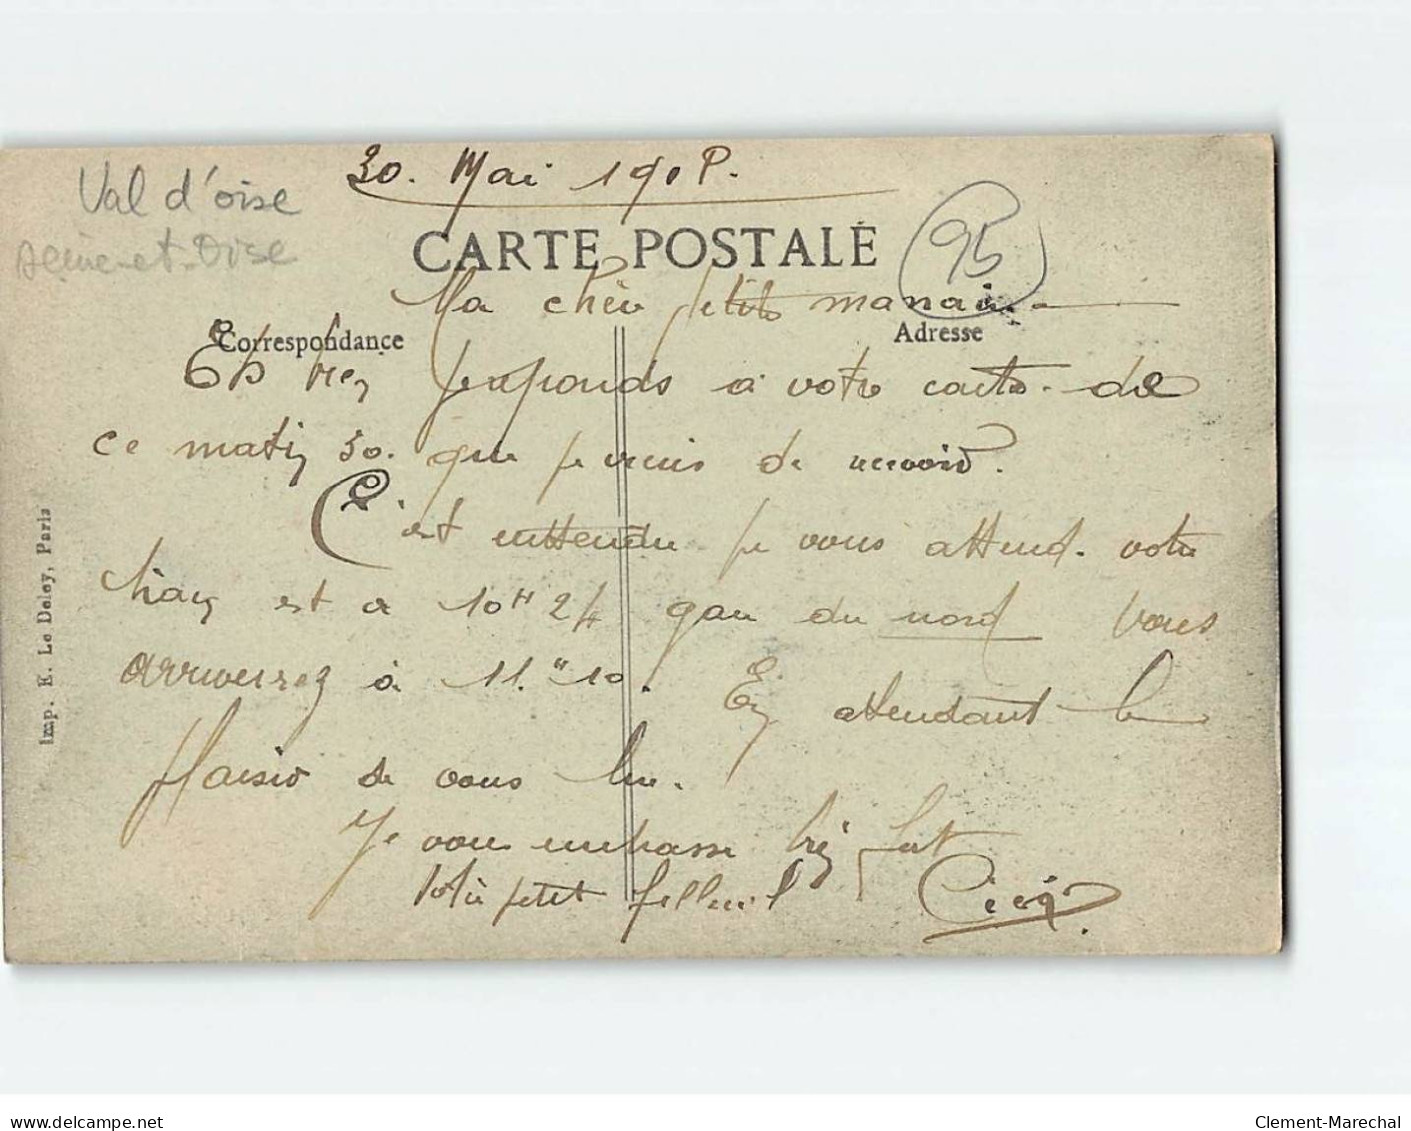 30. Mai 190P.
Val d'oise
seine-et-Oise
CARTE POSTALE
95
Ma chère petite maman.
Correspondance
Adresse
Eh bien je reponds à votre carte de
ce matin 30. que je viens de recevoir.
C'est entendu je vous attend. votre
train est a 10H 24 gare du nord Vous
arriverrez à 11." 10. En attendant le
plaisir de vous lire.
Je vous embrasse bien fort
Votre petit filleuil
Imp. E. Le Deley, Paris
www.delcampe.net
Clement-Marechal